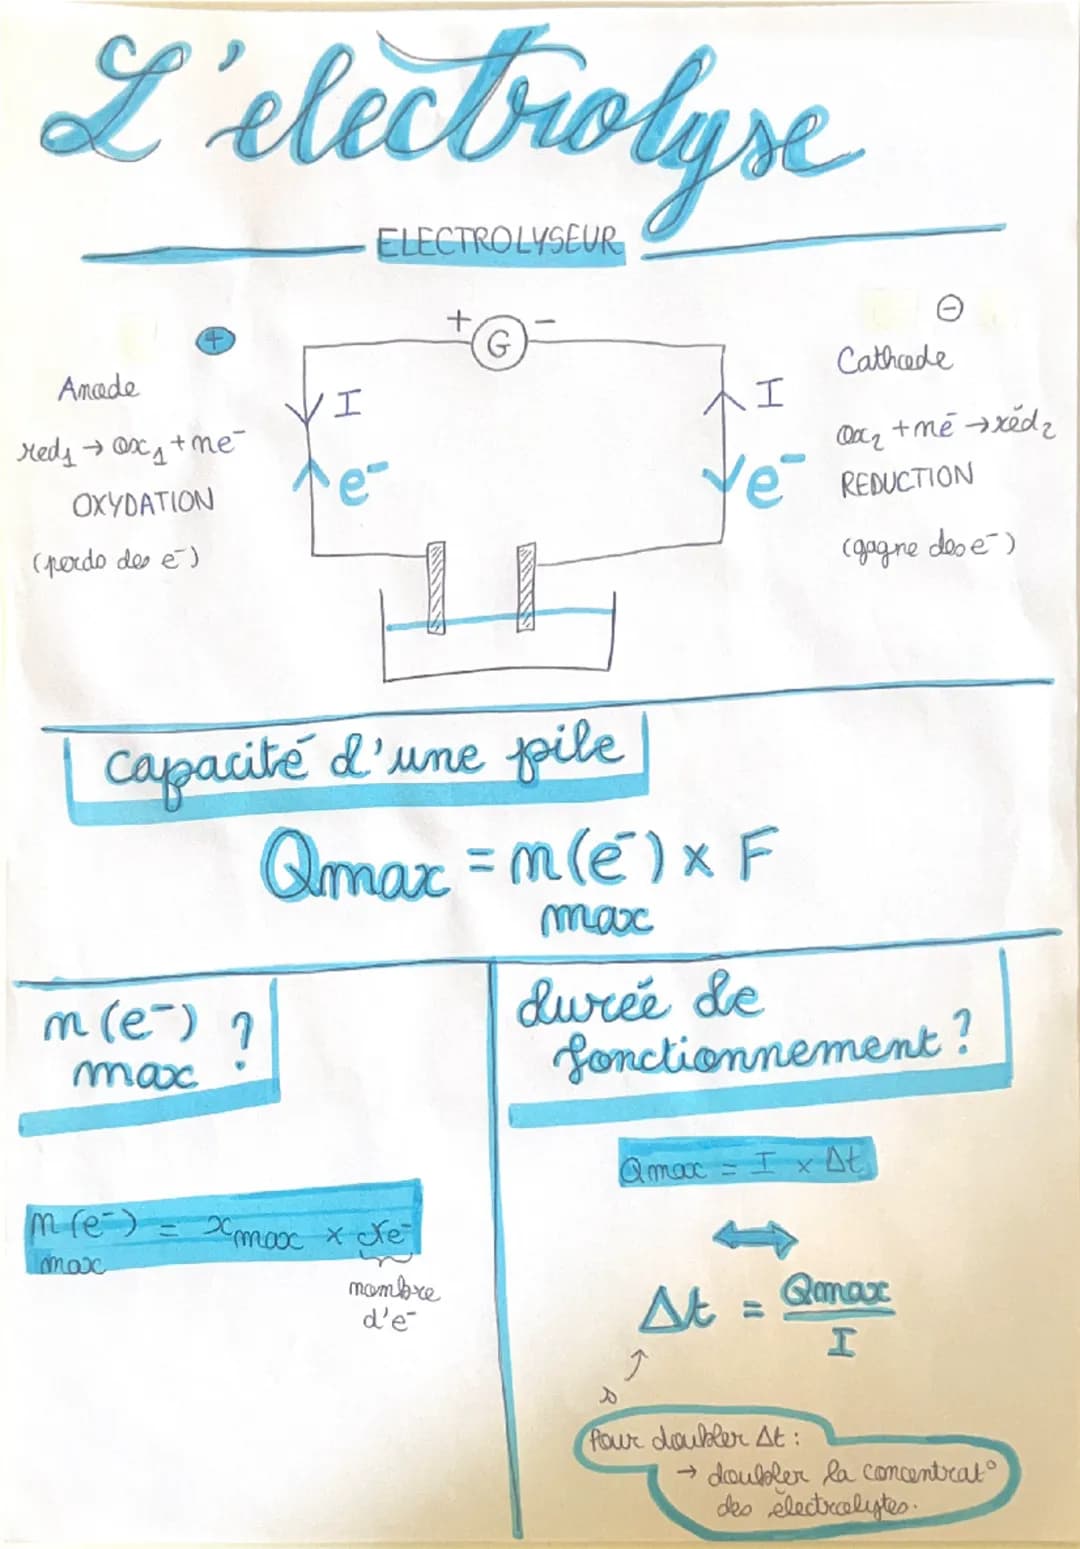 L'electrolyse
ELECTROLYSEUR
+
Anode
red₁ → ox₁ + ne⁻
OXYDATION
(perdo des e⁻)
+ G −
I
e⁻
I
e⁻
⊖
Cathode
ox₂ + ne⁻ → réd₂
REDUCTION
(gagne des e⁻)
capacité d'une pile
Qmax = n(e⁻) x F
max
n(e⁻) ?
max
n(e⁻) = xmax x
max
nombre
d'e⁻
durée de
fonctionnement ?
Qmax = I x Δt
⟺
Δt = Qmax
I
s
Pour doubler Δt :
→ doubler la concentrat°
des électrolytes.